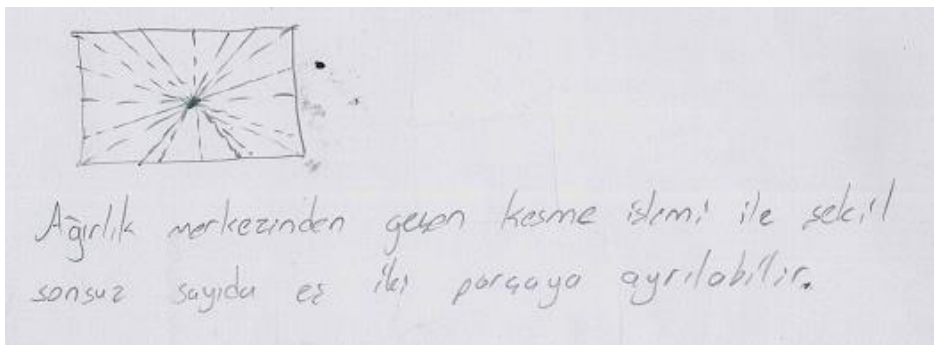 Ağırlık merkezinden geçen kesme işlemi ile şekil
sonsuz sayıda eş iki parçaya ayrılabilir.